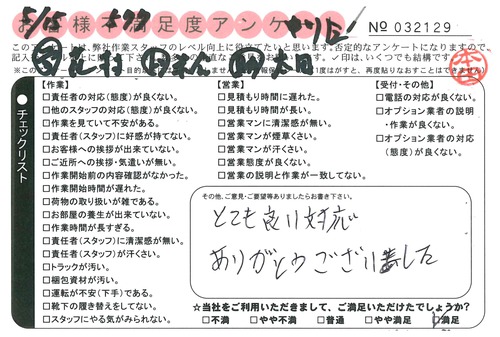 5/15
お客様不満足度アンケート
№ 032129
【作業】
□責任者の対応(態度)が良くない。
□他のスタッフの対応(態度)が良くない。
□作業を見ていて不安がある。
□責任者(スタッフ)に好感が持てない。
□お客様への挨拶が出来ていない。
□ご近所への挨拶・気遣いが無い。
□作業開始前の内容確認がなかった。
□作業開始時間が遅れた。
□荷物の取り扱いが雑である。
□お部屋の養生が出来ていない。
□作業時間が長すぎる。
□責任者(スタッフ)に清潔感が無い。
□責任者(スタッフ)が汗くさい。
□トラックが汚い。
□梱包資材が汚い。
□運転が不安(下手)である。
□靴下の履き替えをしてない。
□スタッフにやる気がみられない。
【営業】
□見積もり時間に遅れた。
□見積もり時間が長い。
□営業マンに清潔感が無い。
□営業マンが煙草くさい。
□営業マンが汗くさい。
□営業態度が良くない。
□営業の説明と作業が一致してない。
【受付・その他】
□電話の対応が良くない。
□オプション業者の説明
・作業が良くない。
□オプション業者の対応
(態度)が良くない。
チェックリスト
その他、ご意見・ご要望等ありましたらお書き下さい。
とても良い対応
ありがとうございました
☆当社をご利用いただきまして、ご満足いただけたでしょうか？
□不満 □やや不満 □普通 □やや満足 □満足